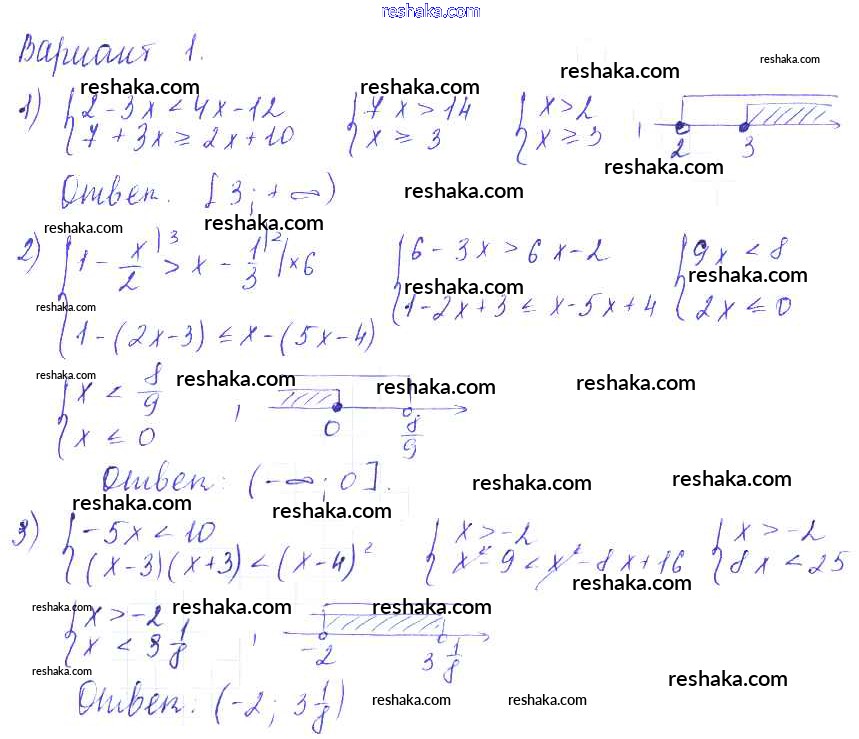 reshaka.com
Вариант 1.
reshaka.com reshaka.com reshaka.com reshaka.com
1) { 2 - 3x < 4x - 12 { 7x > 14 { x > 2
7 + 3x ≥ 2x + 10 x ≥ 3 x ≥ 3 , 2 3
reshaka.com
Ответ. [3; +∞)
reshaka.com
reshaka.com reshaka.com
2) { 1 - x/2 |³ > x - 1/3 |² | ×6 { 6 - 3x > 6x - 2 { 9x < 8
reshaka.com reshaka.com reshaka.com
1 - (2x - 3) ≤ x - (5x - 4) 1 - 2x + 3 ≤ x - 5x + 4 2x ≤ 0
reshaka.com reshaka.com reshaka.com reshaka.com
{ x < 8/9
x ≤ 0 , 0 8/9
Ответ: (-∞; 0].
reshaka.com reshaka.com
reshaka.com reshaka.com
3) { -5x < 10 { x > -2 { x > -2
(x - 3)(x + 3) < (x - 4)² x² - 9 < x² - 8x + 16 8x < 25
reshaka.com
reshaka.com reshaka.com reshaka.com
{ x > -2
x < 3 1/8 , -2 3 1/8
reshaka.com reshaka.com
Ответ: (-2; 3 1/8)
reshaka.com reshaka.com